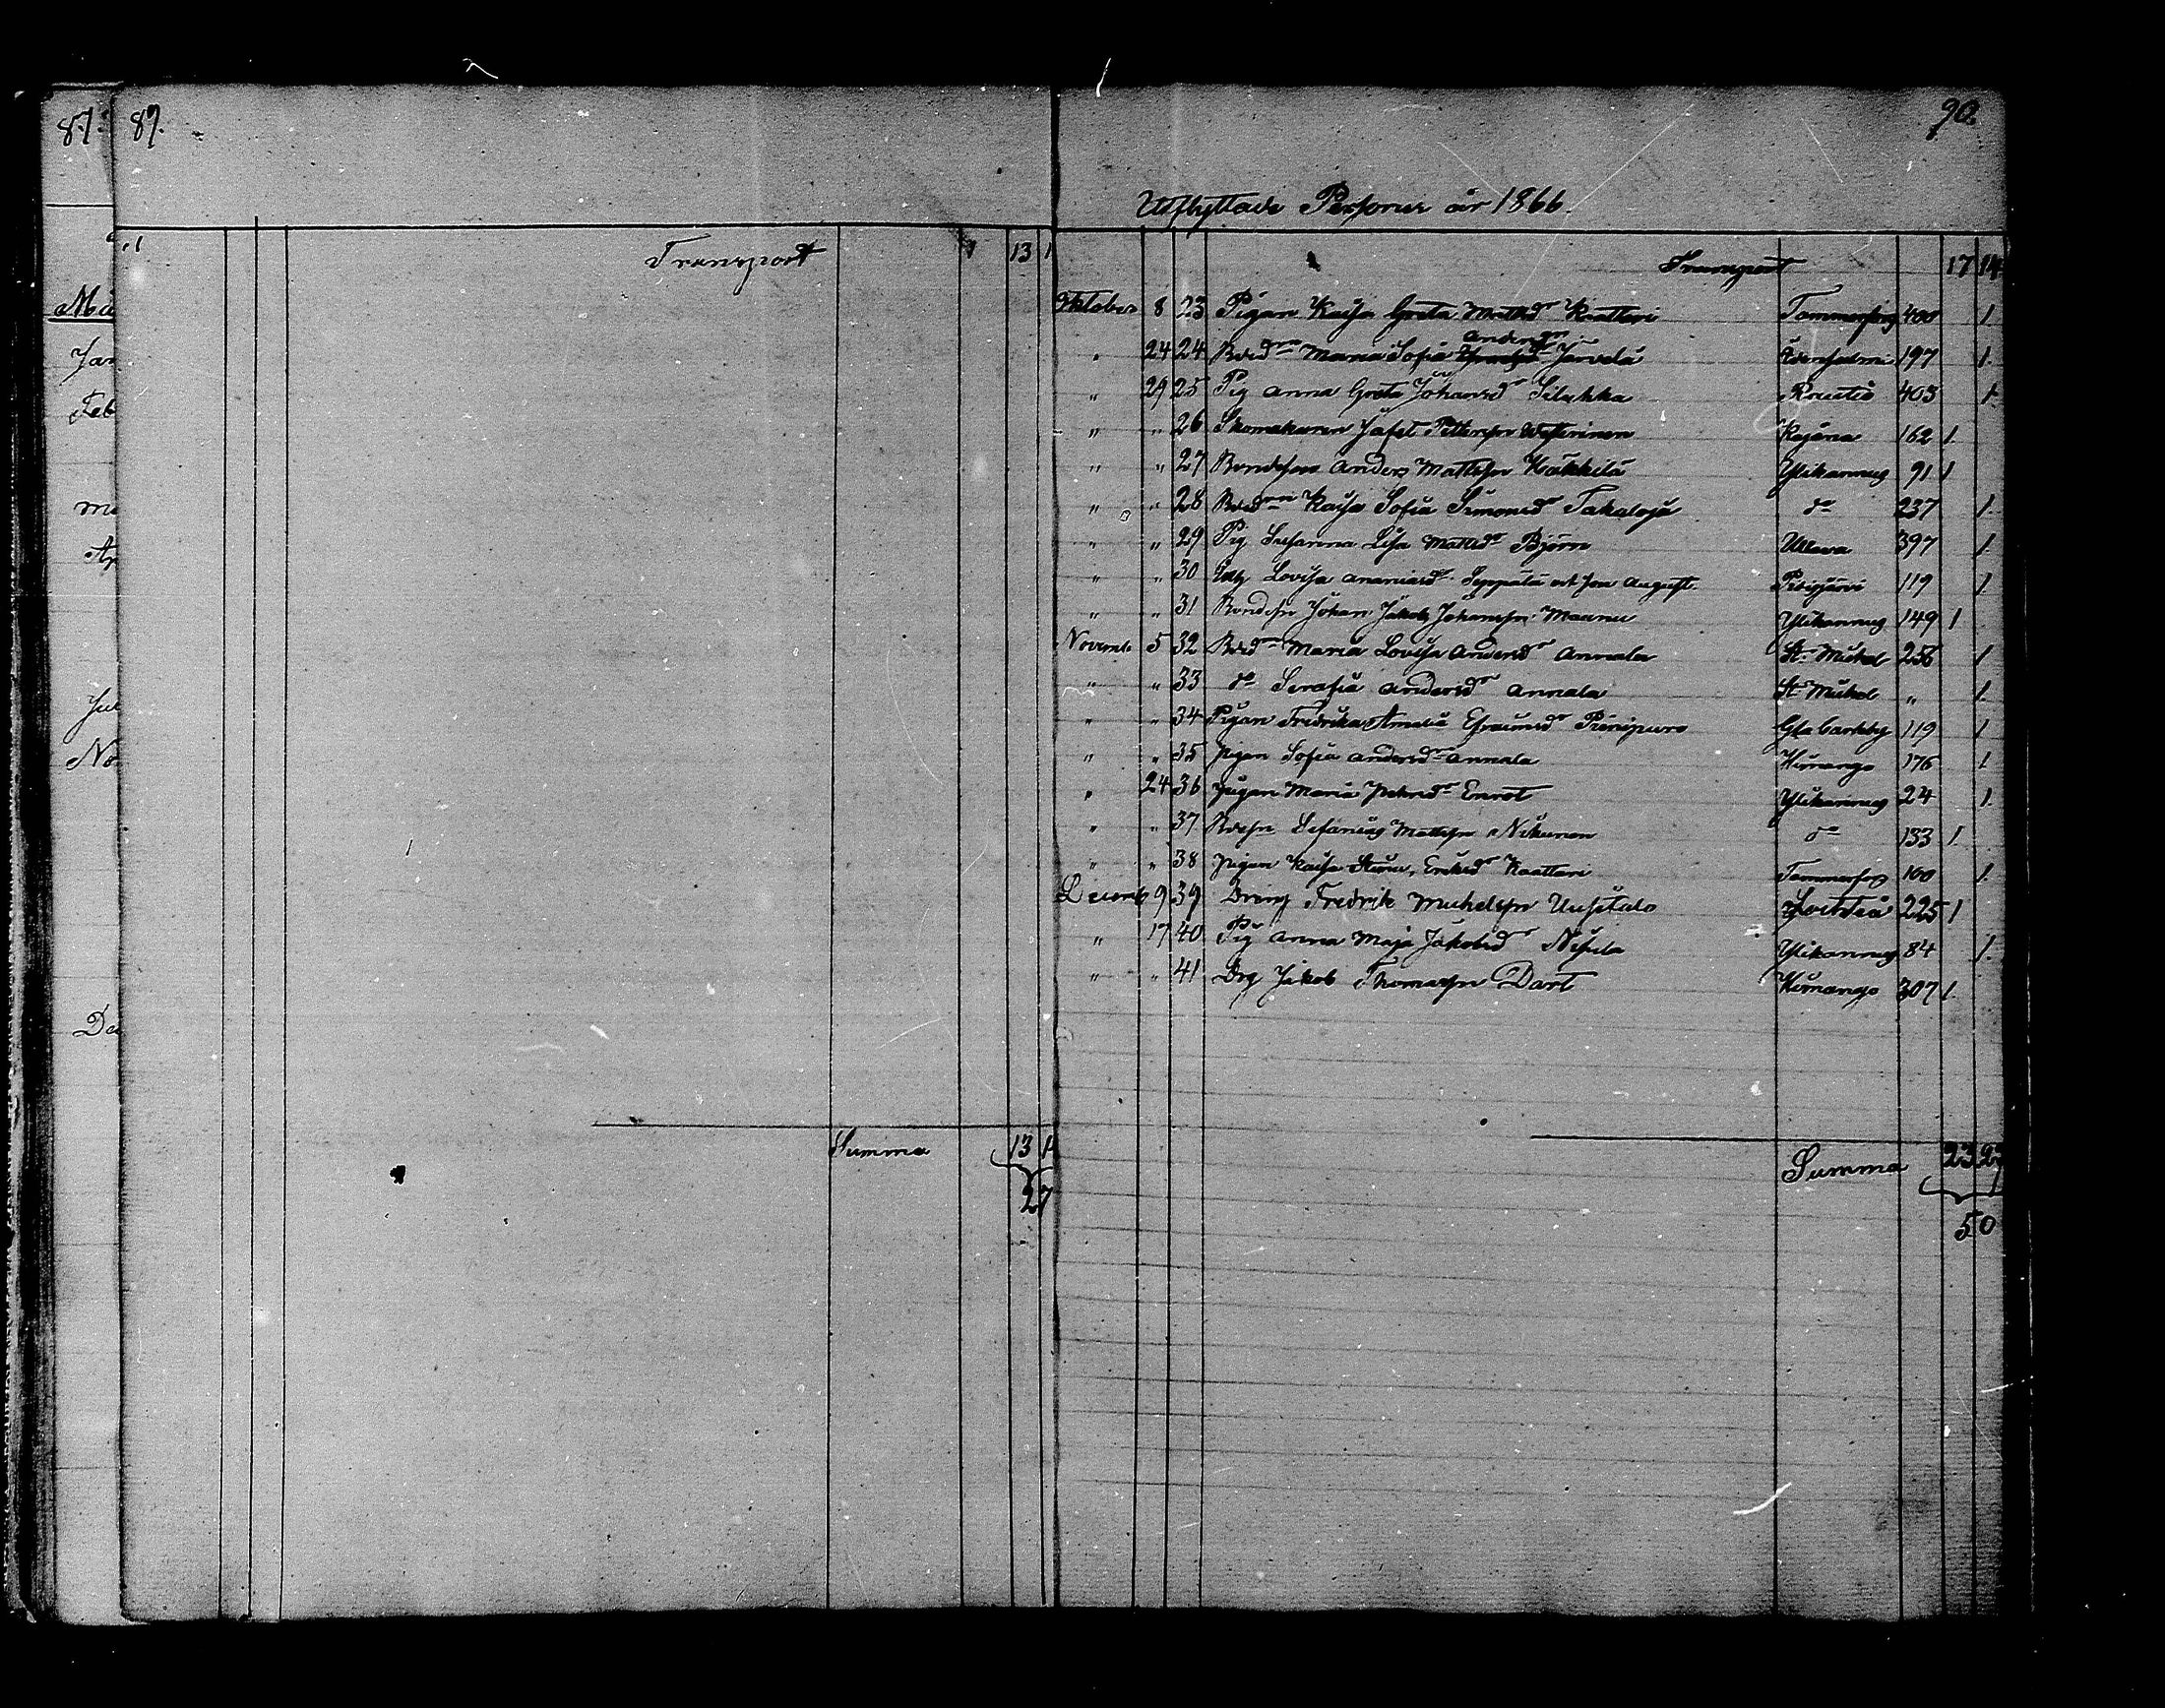 87.
89.
Transport 13 1
Summa 13 1
27
90.
Utflyttade Personer år 1866.
Transport 17 14
Oktober 8 23 Pigan Kaisa Greta Mattsdr Kaattari Tammerfors 400 1.
" 24 24 Bdedrn Maria Sofia Andersdr Järvelä Idensalmi 197 1.
" 29 25 Pig Anna Greta Johansdr Silakka Rautio 403 1.
" " 26 Skomakaren Jafet Pettersson Westerinen Kajana 162 1.
" " 27 Bondeson Anders Mattsson Häkkilä Ylikannus 91 1
" " 28 Bdedrn Kaisa Sofia Simonsdr Takaloja do 237 1.
" " 29 Pig Susanna Lisa Mattsdr Björn Ullava 397 1.
" " 30 Lovisa Ananiasdr Seppälä och son August. Pidisjärvi 119 1.
" " 31 Bondesn Johan Jakob Johansson Maunu Ylikannus 149 1
Novemb. 5 32 Bdedrn Maria Lovisa Andersdr Annala St. Mickel 256 1
" " 33 do Serafia Andersdr Annala St. Mickel " 1.
" " 34 Pigan Fredrika Amalia Efraimsdr Pirinpuro Gla Carleby 119 1
" " 35 Pigan Sofia Andersdr Annala Himango 176 1.
" 24 36 Pigan Maria Petersdr Enrot Ylikannus 24 1.
" " 37 Bdesn Sefanias Mattsson Nikunen do 133 1.
" " 38 Pigan Kaisa Stina Eriksdr Kaattari Tammerfors 100 1.
Decemb 9 39 Dräng Fredrik Michelsson Uusitalo 225 1
" 17 40 Pig Anna Maja Jakobsdr Niskala Ylikannus 84 1.
" " 41 Drg Jakob Thomasson Dart Himango 307 1.
Summa 23 27
50